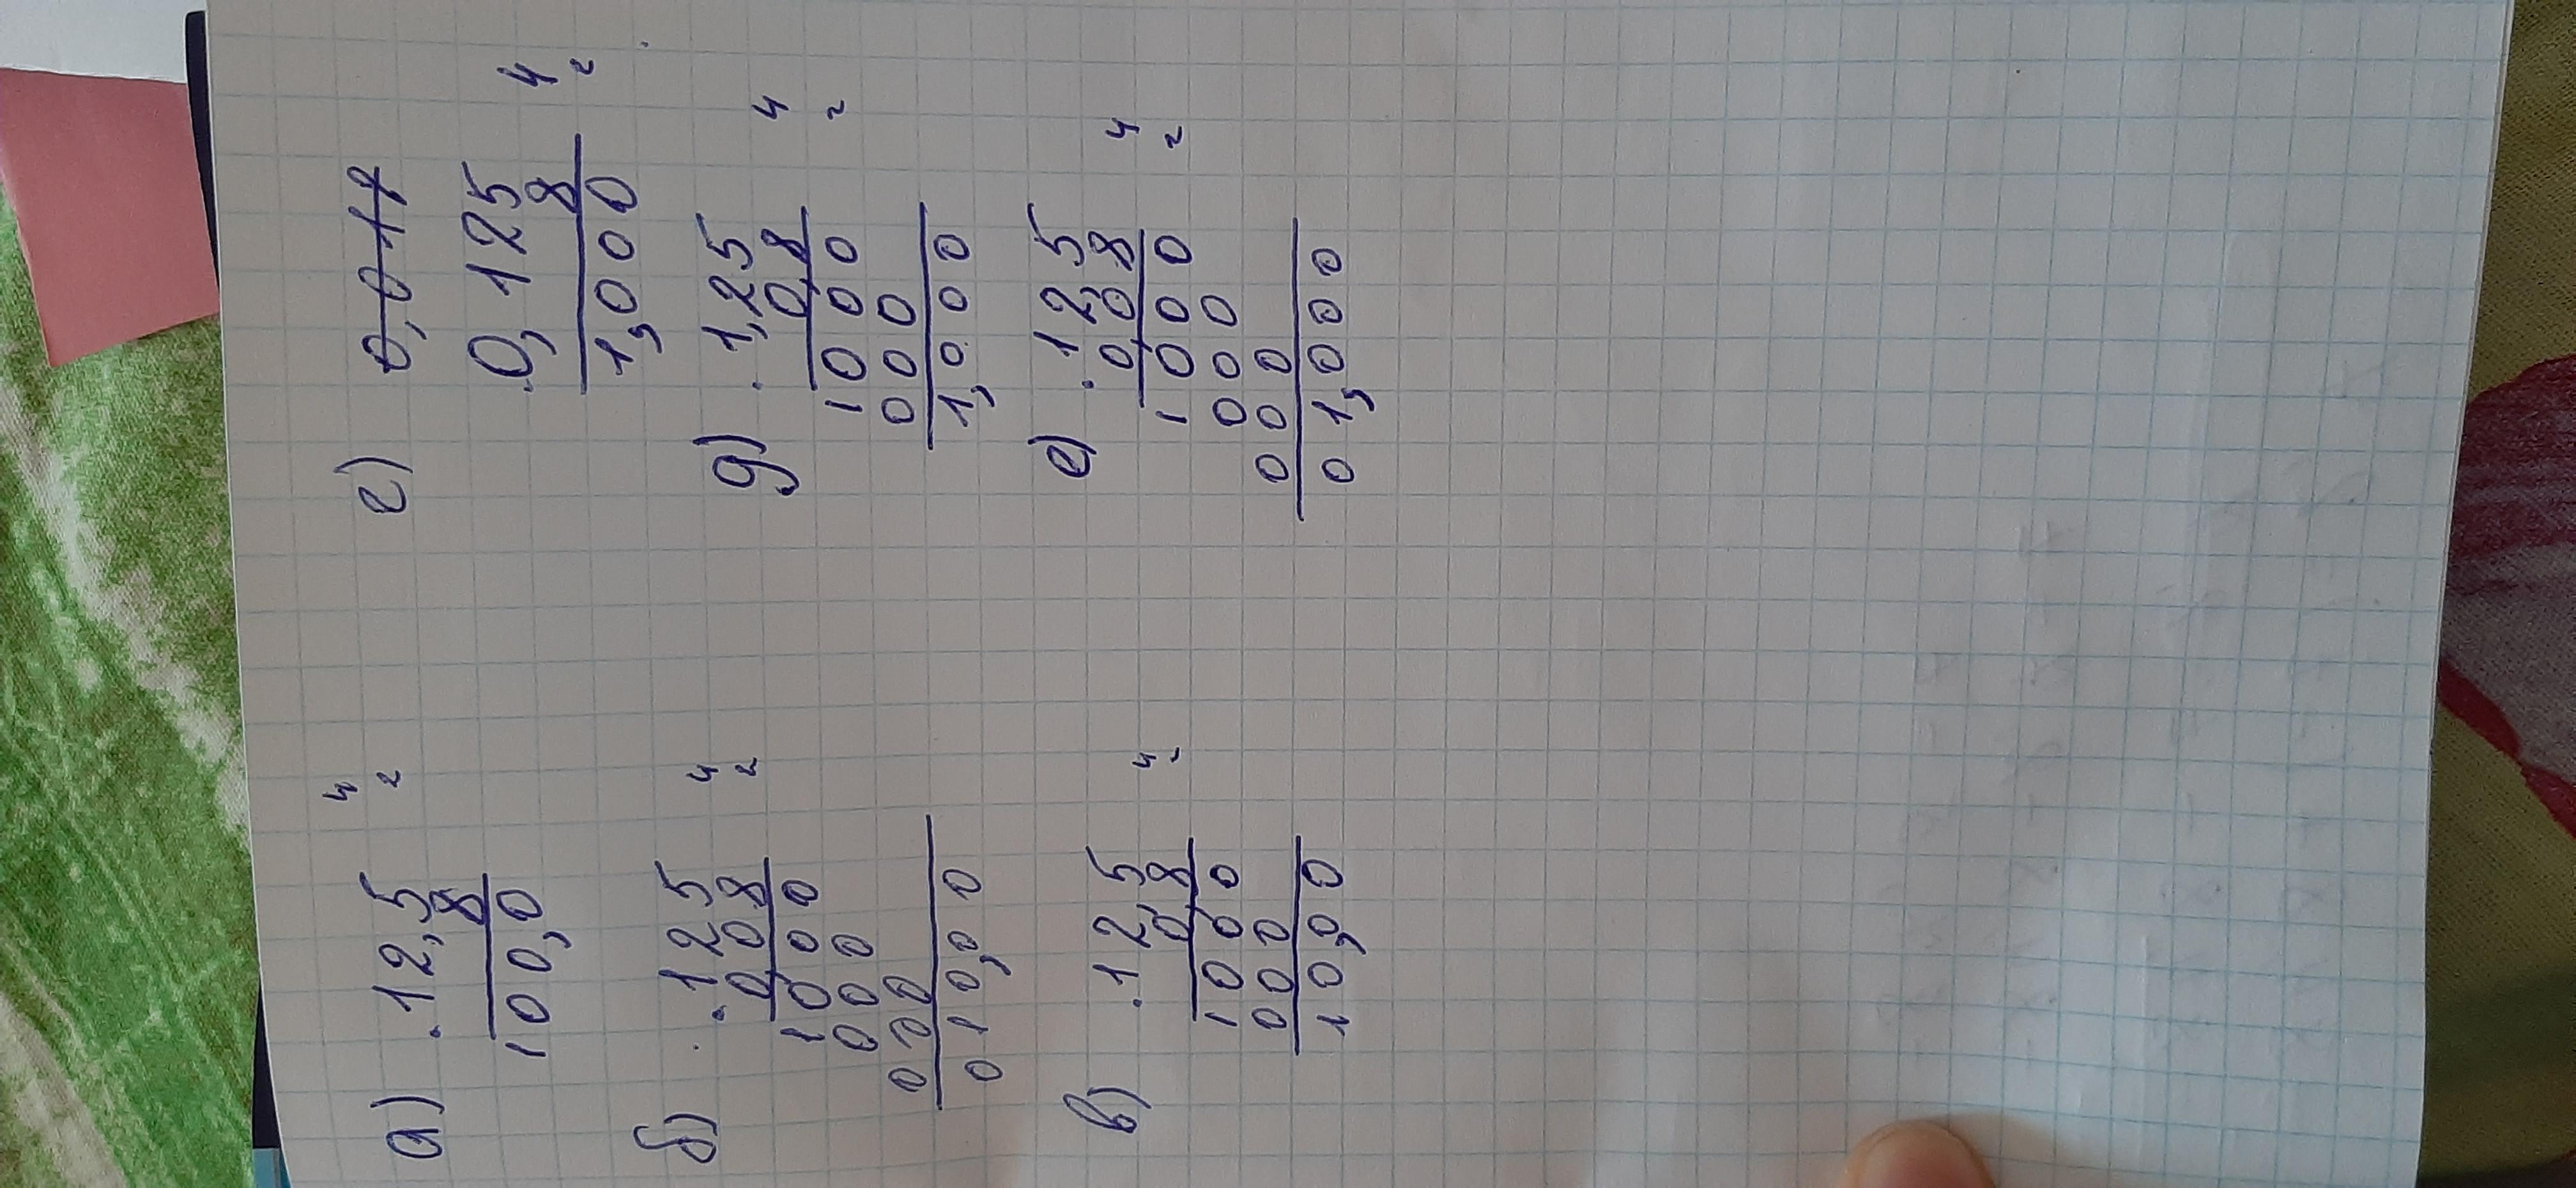 а)
4
2
.12,5
8
100,0
б)
4
2
.125
0,08
1000
000
000
010,00
в)
4
2
.12,5
0,8
1000
000
10,00
г) 0,017
4
2
.0,125
8
1,000
д)
4
2
.1,25
0,8
1000
000
1,000
е)
4
2
.125
0,08
1000
000
000
01,000